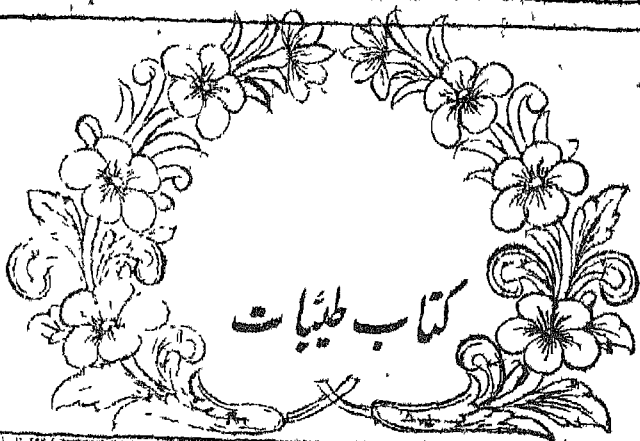 کتاب طیّبات